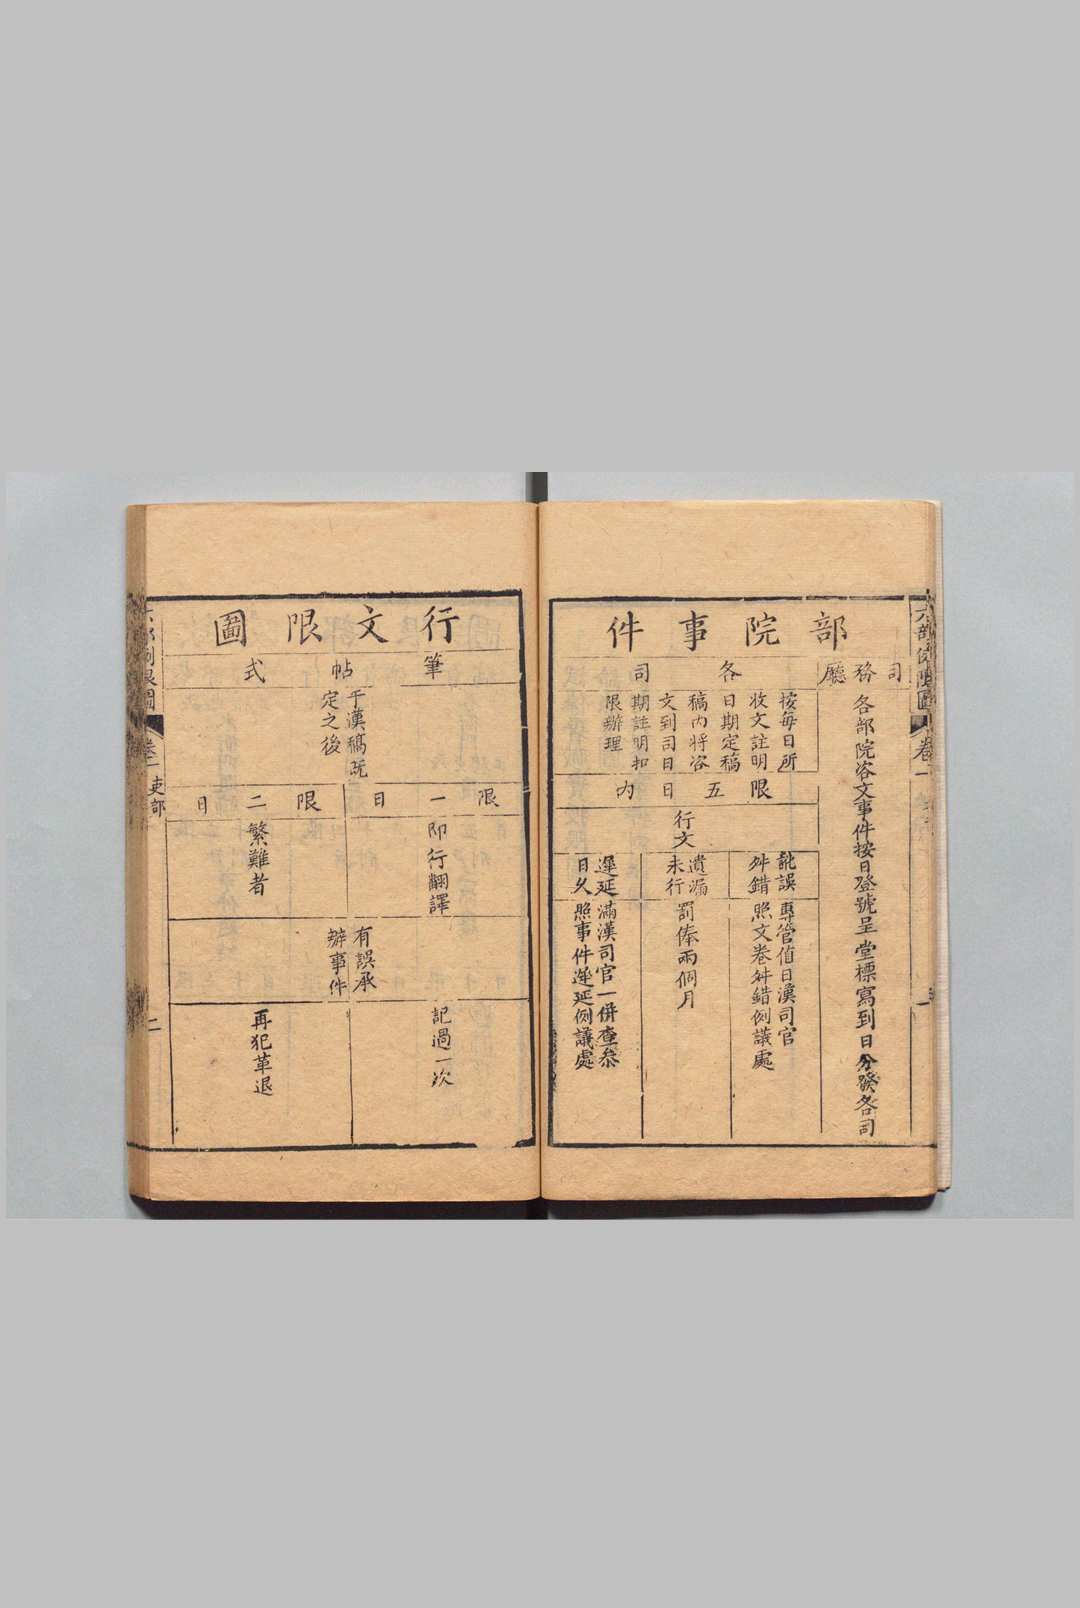 部院事件
司務廳
各部院咨文事件按日登號呈 堂標寫到日分發各司
各司
按每日所
收文註明
日期定稿
稿內將咨
文到司日
期註明扣
限辦理
限五日內
行文
訛誤
舛錯
專管值日漢司官
照文卷舛錯例議處
遺漏
未行
罰俸兩個月
遲延
日久
滿漢司官一併查叅
照事件遲延例議處
行文限圖
筆帖式
于漢稿既
定之後
限一日
即行翻譯
限二日
繁難者
有誤承
辦事件
記過一次
再犯革退
六部例限圖
卷一
吏部
二
六部例限圖
卷一